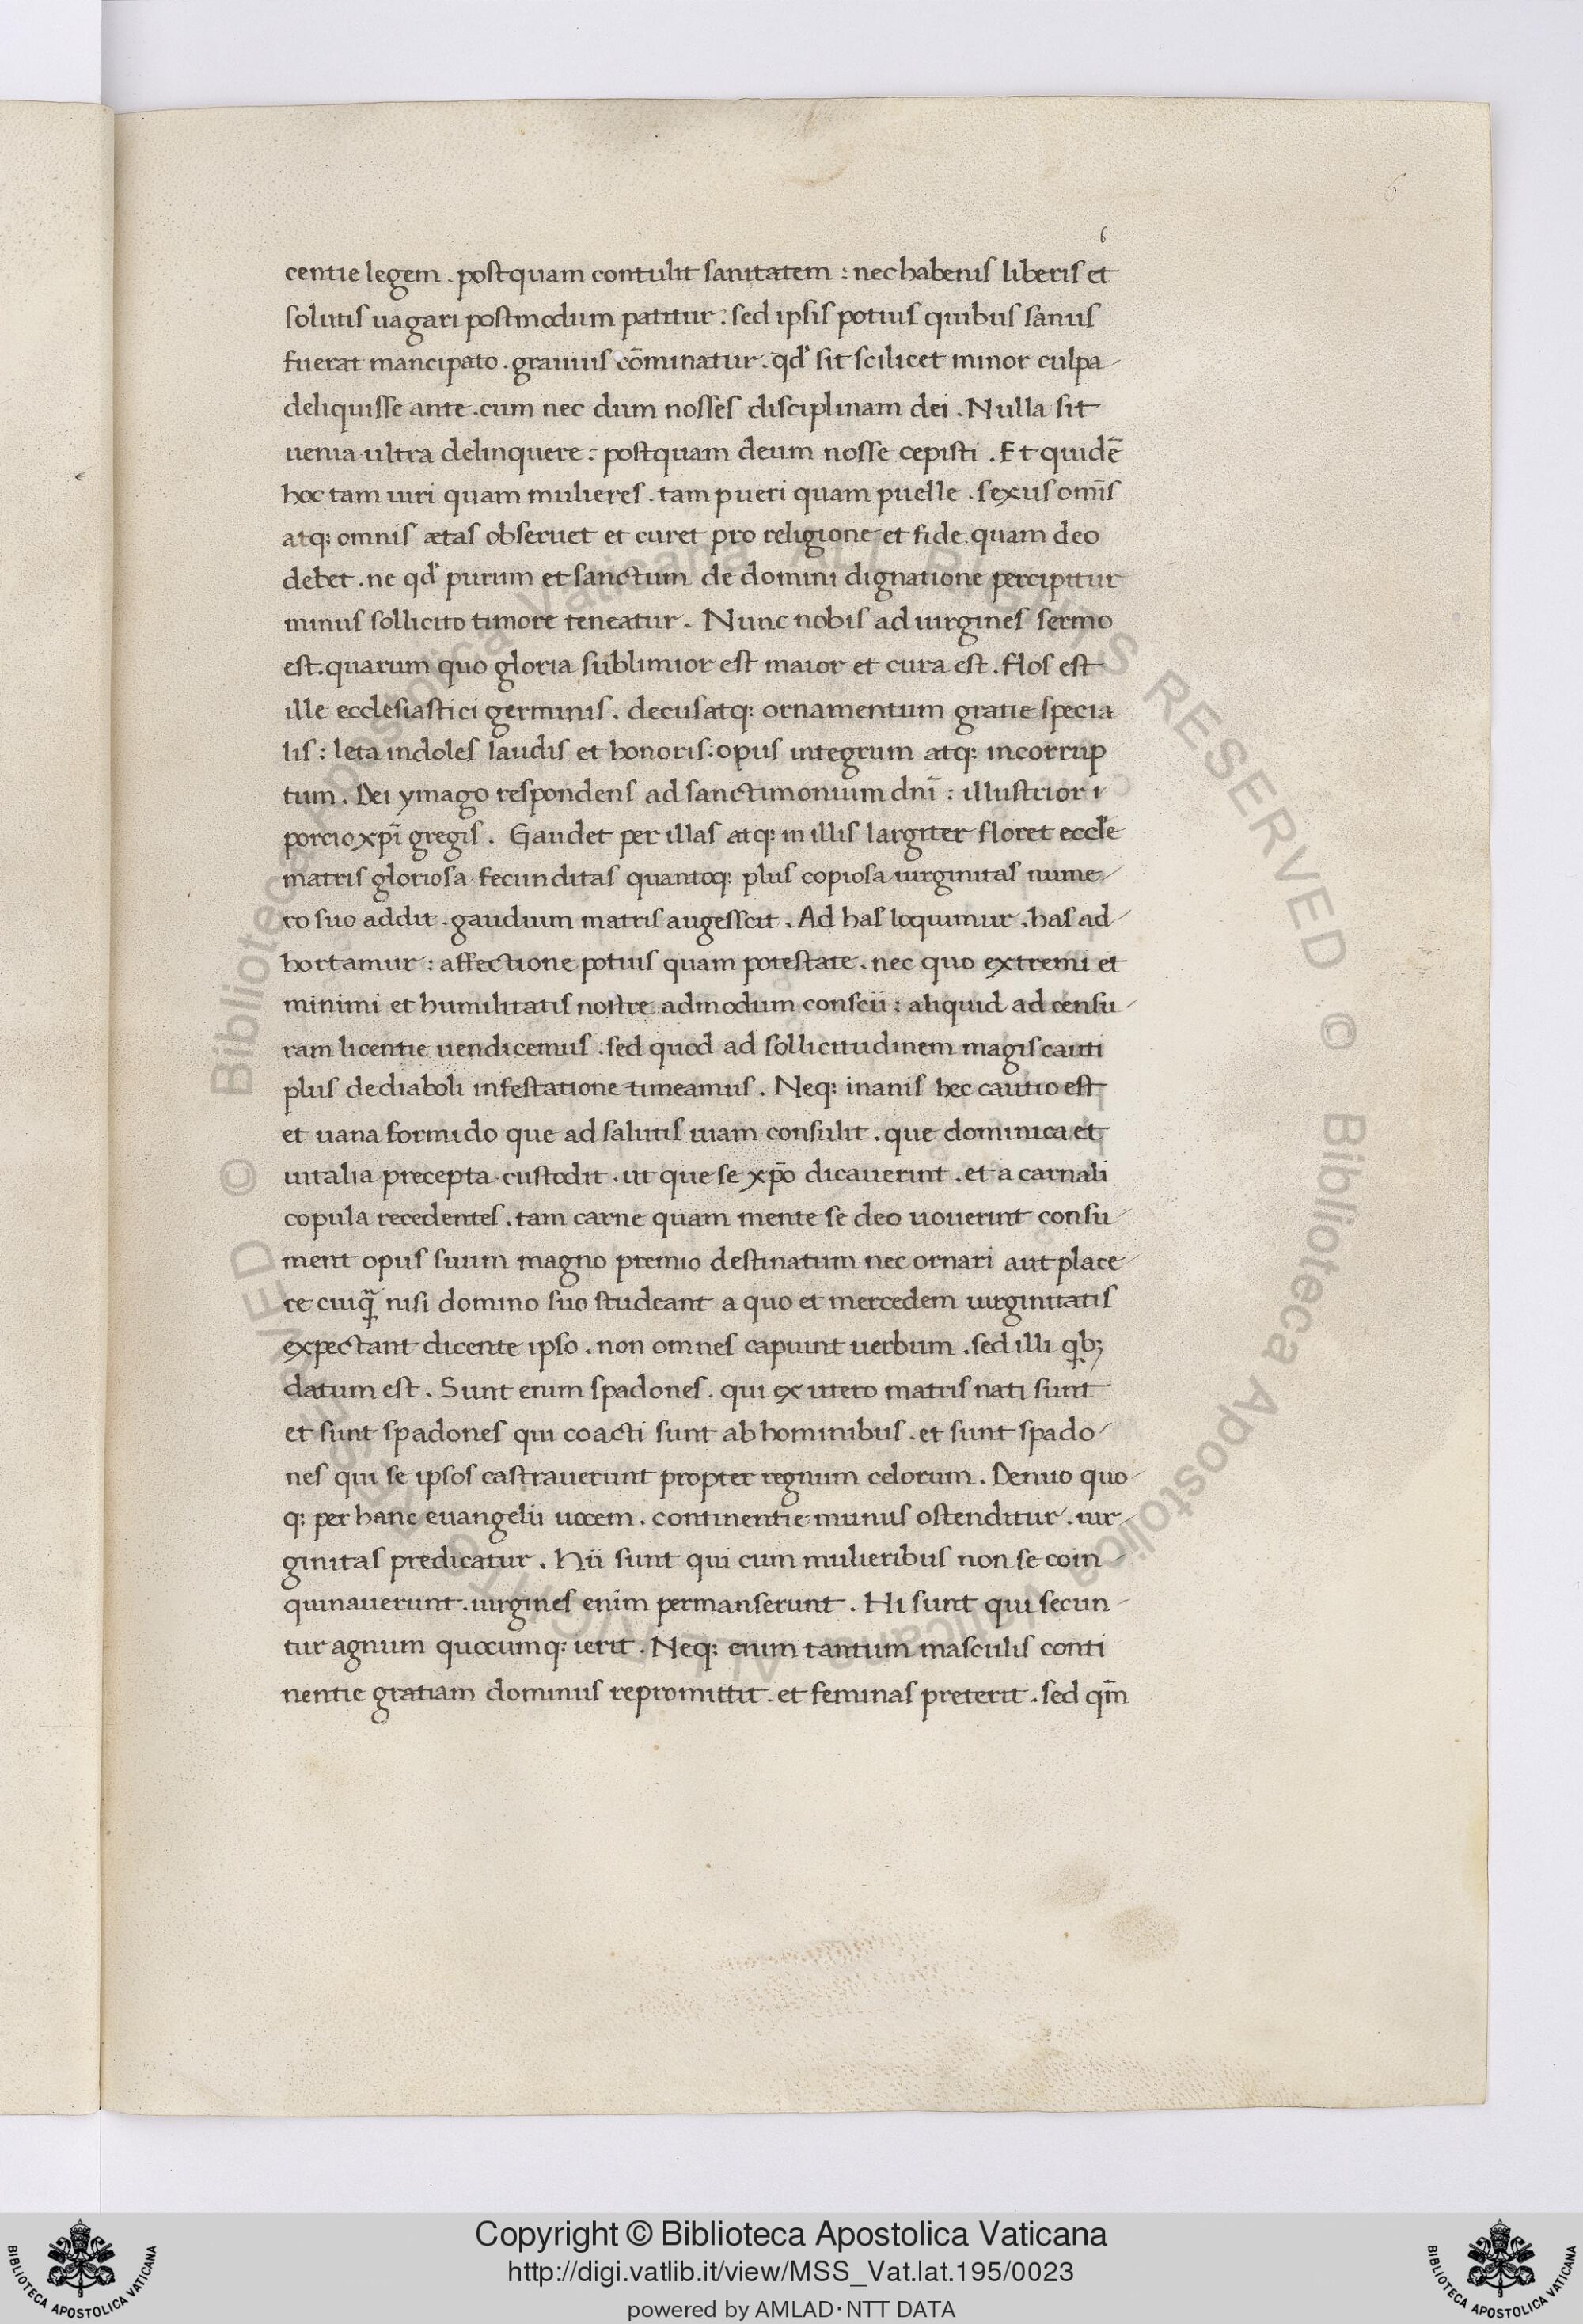 6
6
centie legem . postquam contulit sanitatem : nec habenis liberis et
solutis uagari postmodum patitur : sed ipsis potius quibus sanus
fuerat mancipato . grauius cōminatur . qd' sit scilicet minor culpa
deliquisse ante . cum nec dum nosses disciplinam dei . Nulla sit
uenia ultra delinquere : postquam deum nosse cepisti . Et quidē
hoc tam uiri quam mulieres . tam pueri quam puelle . sexus om̄is
atq; omnis ætas obseruet et curet pro religione et fide quam deo
debet . ne qd' purum et sanctum de domini dignatione percipitur
minus sollicito timore teneatur . Nunc nobis ad uirgines sermo
est . quarum quo gloria sublimior est maior et cura est . flos est
ille ecclesiastici germinis . decus atq; ornamentum gratie specia
lis : leta indoles laudis et honoris . opus integrum atq; incorrup
tum . Dei ymago respondens ad sanctimonium dn̄i : illustrior i
porcio xp̄i gregis . Gaudet per illas atq; in illis largiter floret eccl'e
matris gloriosa fecunditas quantoq; plus copiosa uirginitas nume
ro suo addit . gaudium matris augesscit . Ad has loquimur . has ad
hortamur : affectione potius quam potestate . nec quo extremi et
minimi et humilitatis nostre admodum conscii : aliquid ad censu
ram licentie uendicemus . sed quod ad sollicitudinem magis cauti
plus de diaboli infestatione timeamus . Neq; inanis hec cautio est
et uana formido que ad salutis uiam consulit . que dominica et
uitalia precepta custodit . ut que se xp̄o dicauerint . et a carnali
copula recedentes . tam carne quam mente se deo uouerint consu
ment opus suum magno premio destinatum nec ornari aut place
re cuiq̄ nisi domino suo studeant a quo et mercedem uirginitatis
expectant dicente ipso . non omnes capiunt uerbum . sed illi qb;
datum est . Sunt enim spadones . qui ex utero matris nati sunt
et sunt spadones qui coacti sunt ab hominibus . et sunt spado
nes qui se ipsos castrauerunt propter regnum celorum . Denuo quo
q; per hanc euangelii uocem . continentie munus ostenditur . uir
ginitas predicatur . Hii sunt qui cum mulieribus non se coin
quinauerunt . uirgines enim permanserunt . Hi sunt qui secun
tur agnum quocumq; ierit . Neq; enim tantum masculis conti
nentie gratiam dominus repromittit . et feminas preterit . sed qm̄
© Biblioteca Apostolica Vaticana ALL RIGHTS RESERVED
© Biblioteca Apostolica Vaticana ALL RIGHTS RESERVED
Copyright © Biblioteca Apostolica Vaticana
http://digi.vatlib.it/view/MSS_Vat.lat.195/0023
powered by AMLAD·NTT DATA
BIBLIOTECA APOSTOLICA VATICANA
BIBLIOTECA APOSTOLICA VATICANA